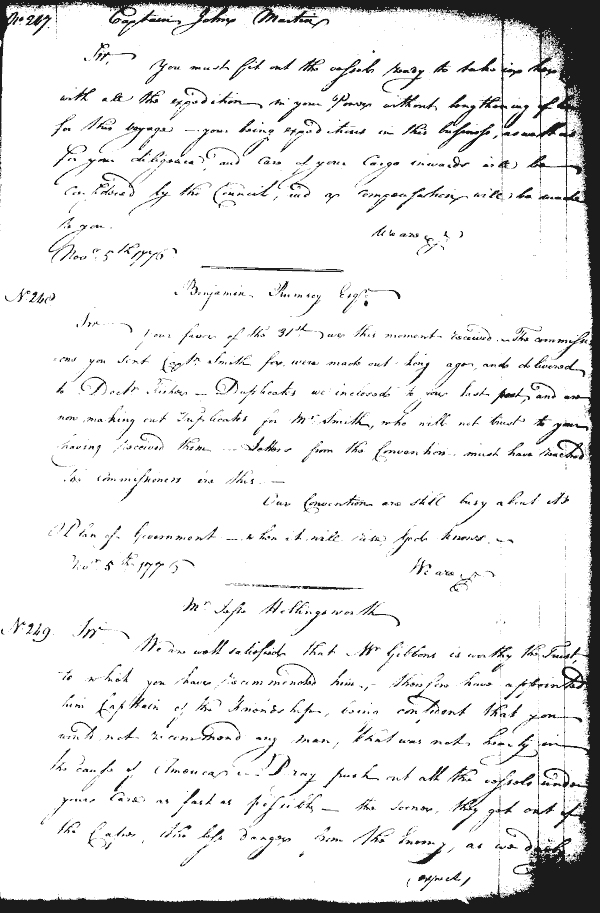 No 247. Captain John Martin
Sir, You must fit out the vessels ready to take in
with all the expedition in your Power without lengthening of
for this voyage — your being expeditious in this business, as well as
for your diligence, and care of your Cargo inwards will be
considered by the Council, and a compensation will be made
to you. We are &c
Novr 5th 1776
No 248 Benjamin Rumsey Esqr
Sir Your favor of the 31st was this moment received — The commissi
ons you sent Captn Smith for, were made out long ago, and delivered
to Doctr Fisher — Duplicates we inclosed to you last post, and are
now making out Triplicates for Mr Smith, who will not trust to your
having received them — Letters from the Convention must have reached
the commissioners ere this. —
Our Convention are still busy about the
Plan of Government — when it will rise, God knows. —
Novr 5th 1776 We are &c
Mr Jesse Hollingsworth
No 249 Sir We are well satisfied that Mr Gibbons is worthy the Trust,
to which you have recommended him, therefore have appointed
him Captain of the Friendship, being confident that you
would not recommend any man, that was not hearty in
the cause of America — Pray push out all the vessels under
your Care as fast as possible — the sooner they get out of
the Capes, the less danger from the Enemy, as we daily
expect,